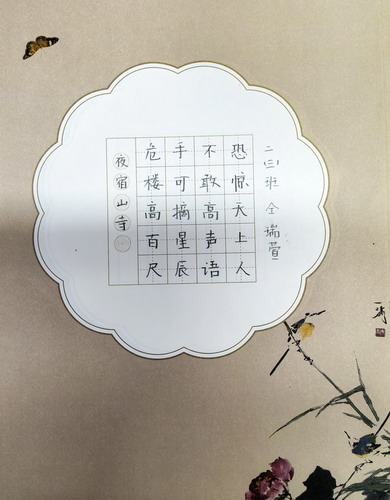 夜宿山寺
危楼高百尺
手可摘星辰
不敢高声语
恐惊天上人
二(三)班 仝瑞萱